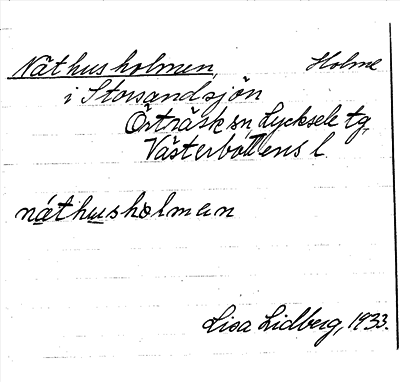 Näthusholmen, Holme
i Storsandsjön
Örträsk sn, Lycksele tg,
Västerbottens l.
näthushɷlman
Lisa Lidberg, 1933.